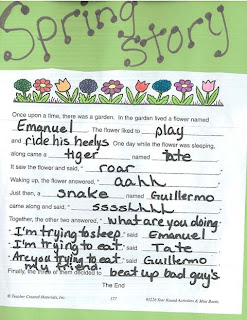 Spring
Story
Once upon a time, there was a garden. In the garden lived a flower named
Emanuel. The flower liked to play
and ride his heelys. One day while the flower was sleeping,
along came a tiger named Tate
It saw the flower and said, "roar
Waking up, the flower answered, "aahh
Just then, a snake named Guillermo
came along and said, "sssshhhh
Together, the other two answered, "What are you doing
"I'm trying to sleep" said Emanuel
"I'm trying to eat" said Tate
"Are you trying to eat my friend" said Guillermo
Finally, the three of them decided to beat up bad guy's
The End
© Teacher Created Materials, Inc. 177 #1226 Year Round Activities & Mini Books